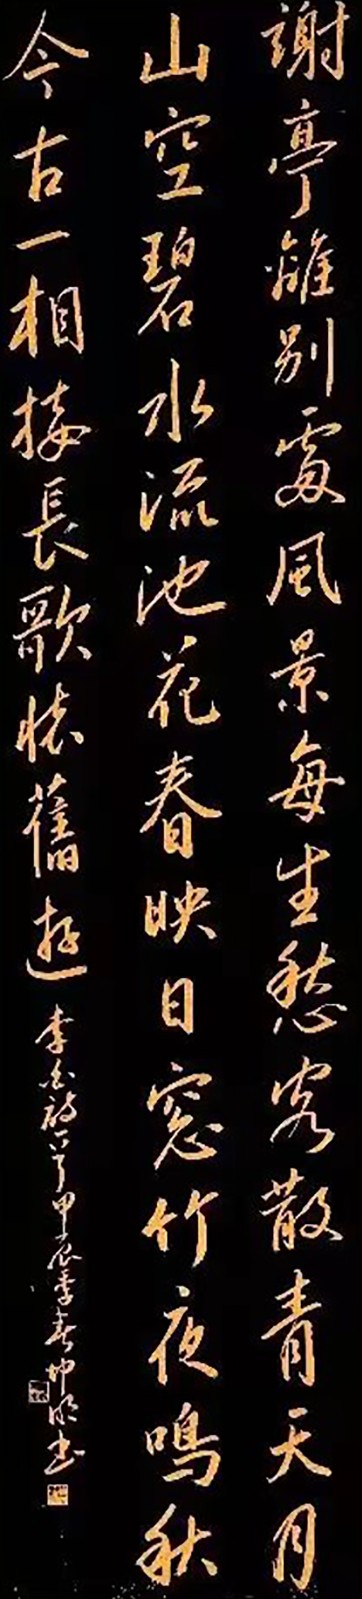 謝亭離別處風景每生愁客散青天月
山空碧水流池花春映日窗竹夜鳴秋
今古一相接長歌懷舊遊
李白詩一首甲辰季春坤明書